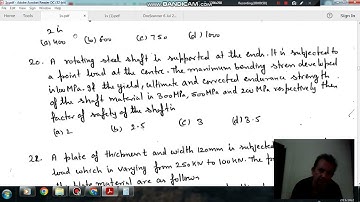 WWW.BANDICAM.COM
2 is
(a) 400 (b) 600 (c) 750 (d) 1000
20. A rotating steel shaft is supported at the ends. It is subjected to
a point load at the centre. The maximum bending stress developed
is 100 MPa. If the yield, ultimate and corrected endurance strength
of the shaft material is 300 MPa, 500 MPa and 200 MPa respectively then
factor of safety of the shaft is
(a) 2 (b) 2.5 (c) 3 (d) 3.5
A plate of thickness and width 120mm is subjected
load which is varying from 250 kN to 100 kN. The
plate material are as follows